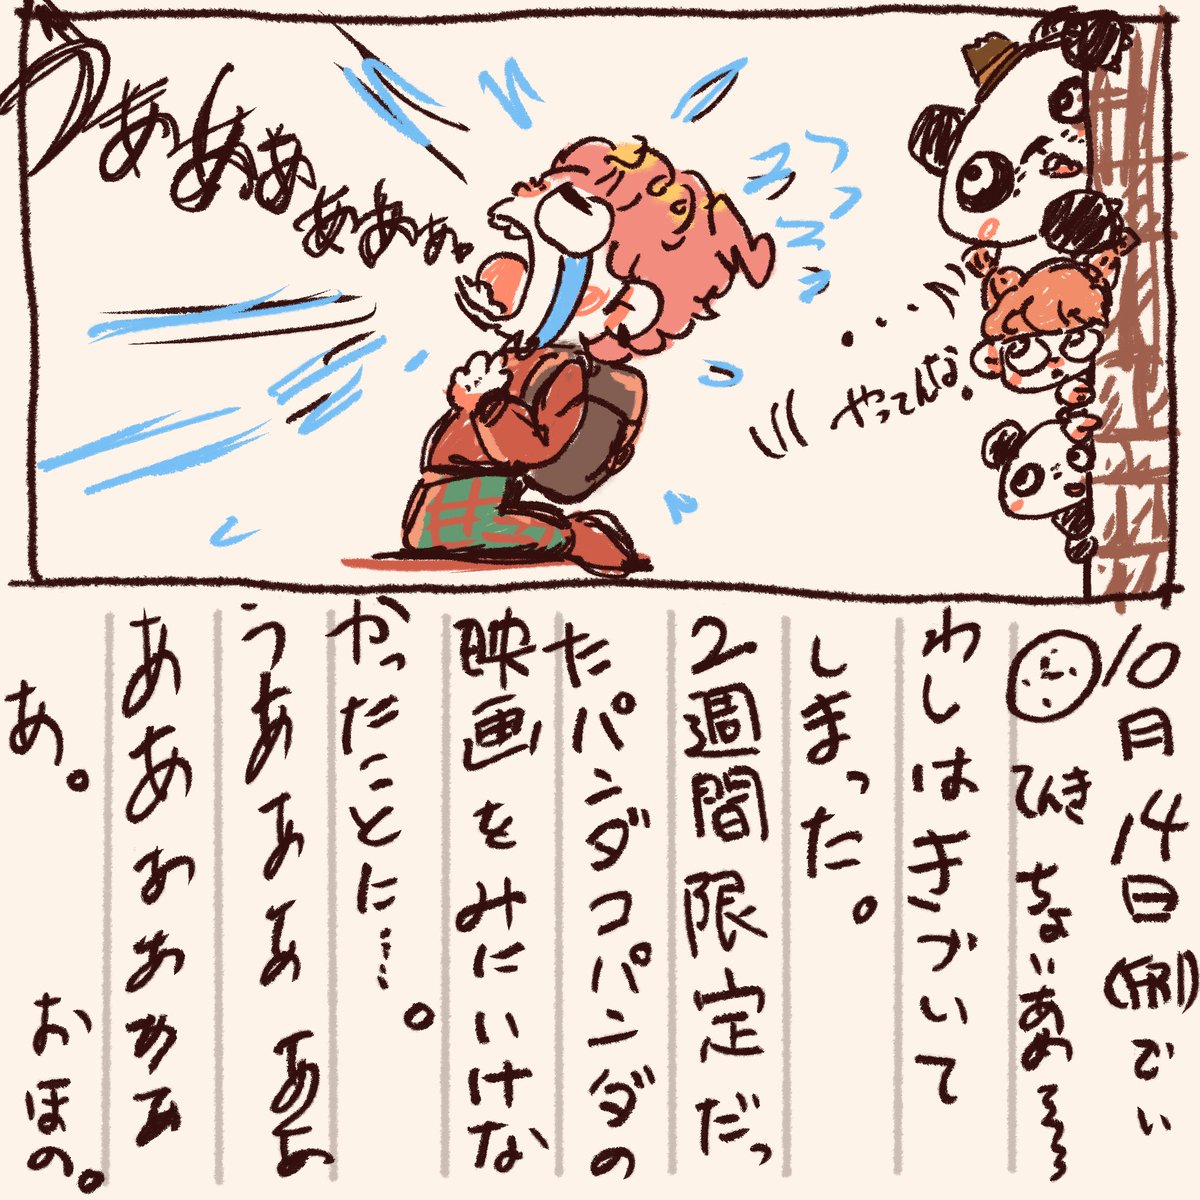 うああああああ。
・・・
やってんな。
10月14日(金)でい
てんき ちょいあめ
わしはきづいて
しまった。
2週間限定だっ
たパンダコパンダの
映画をみにいけな
かったことに…。
うああああああ
ああおああああ
あ。 おほの。